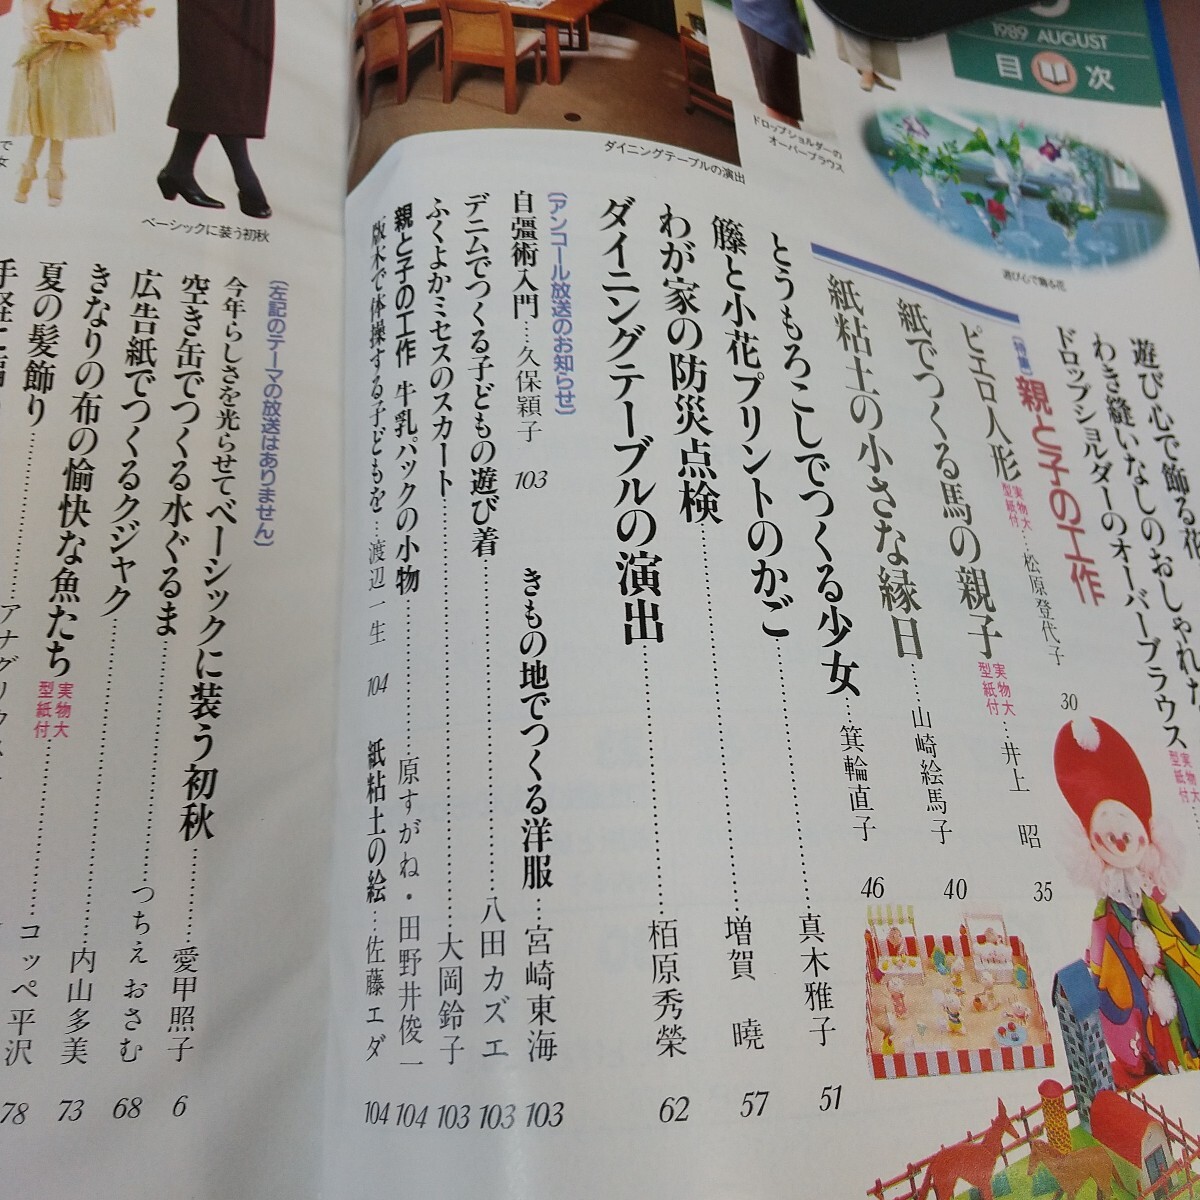 1989 AUGUST
目次
遊び心で飾る花
ドロップショルダーの
オーバーブラウス
ダイニングテーブルの演出
ベーシックに装う初秋
遊び心で飾る花
わき縫いなしのおしゃれな
ドロップショルダーのオーバーブラウス 実物大型紙付
〔特集〕親と子の工作
ピエロ人形 実物大型紙付…松原登代子 30
紙でつくる馬の親子 実物大型紙付…井上 昭 35
紙粘土の小さな縁日…山崎絵馬子 40
とうもろこしでつくる少女…箕輪直子 46
籐と小花プリントのかご…真木雅子 51
わが家の防災点検…増賀 曉 57
ダイニングテーブルの演出…栢原秀榮 62
〔アンコール放送のお知らせ〕
自彊術入門…久保穎子 103
きもの地でつくる洋服…宮崎東海 103
デニムでつくる子どもの遊び着…八田カズエ 103
ふくよかミセスのスカート…大岡鈴子 103
親と子の工作 牛乳パックの小物…原すがね・田野井俊一 104
版木で体操する子どもを…渡辺一生 104
紙粘土の絵…佐藤エダ 104
〔左記のテーマの放送はありません〕
今年らしさを光らせてベーシックに装う初秋…愛甲照子 6
空き缶でつくる水ぐるま…つちえ おさむ 68
広告紙でつくるクジャク…内山多美 73
きなりの布の愉快な魚たち 実物大型紙付…コッペ平沢 78
夏の髪飾り